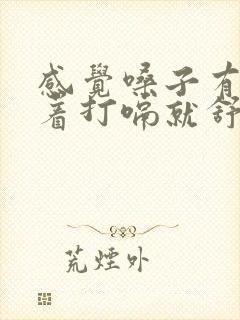 感覺嗓子有
着打嗝就舒
荒煙外